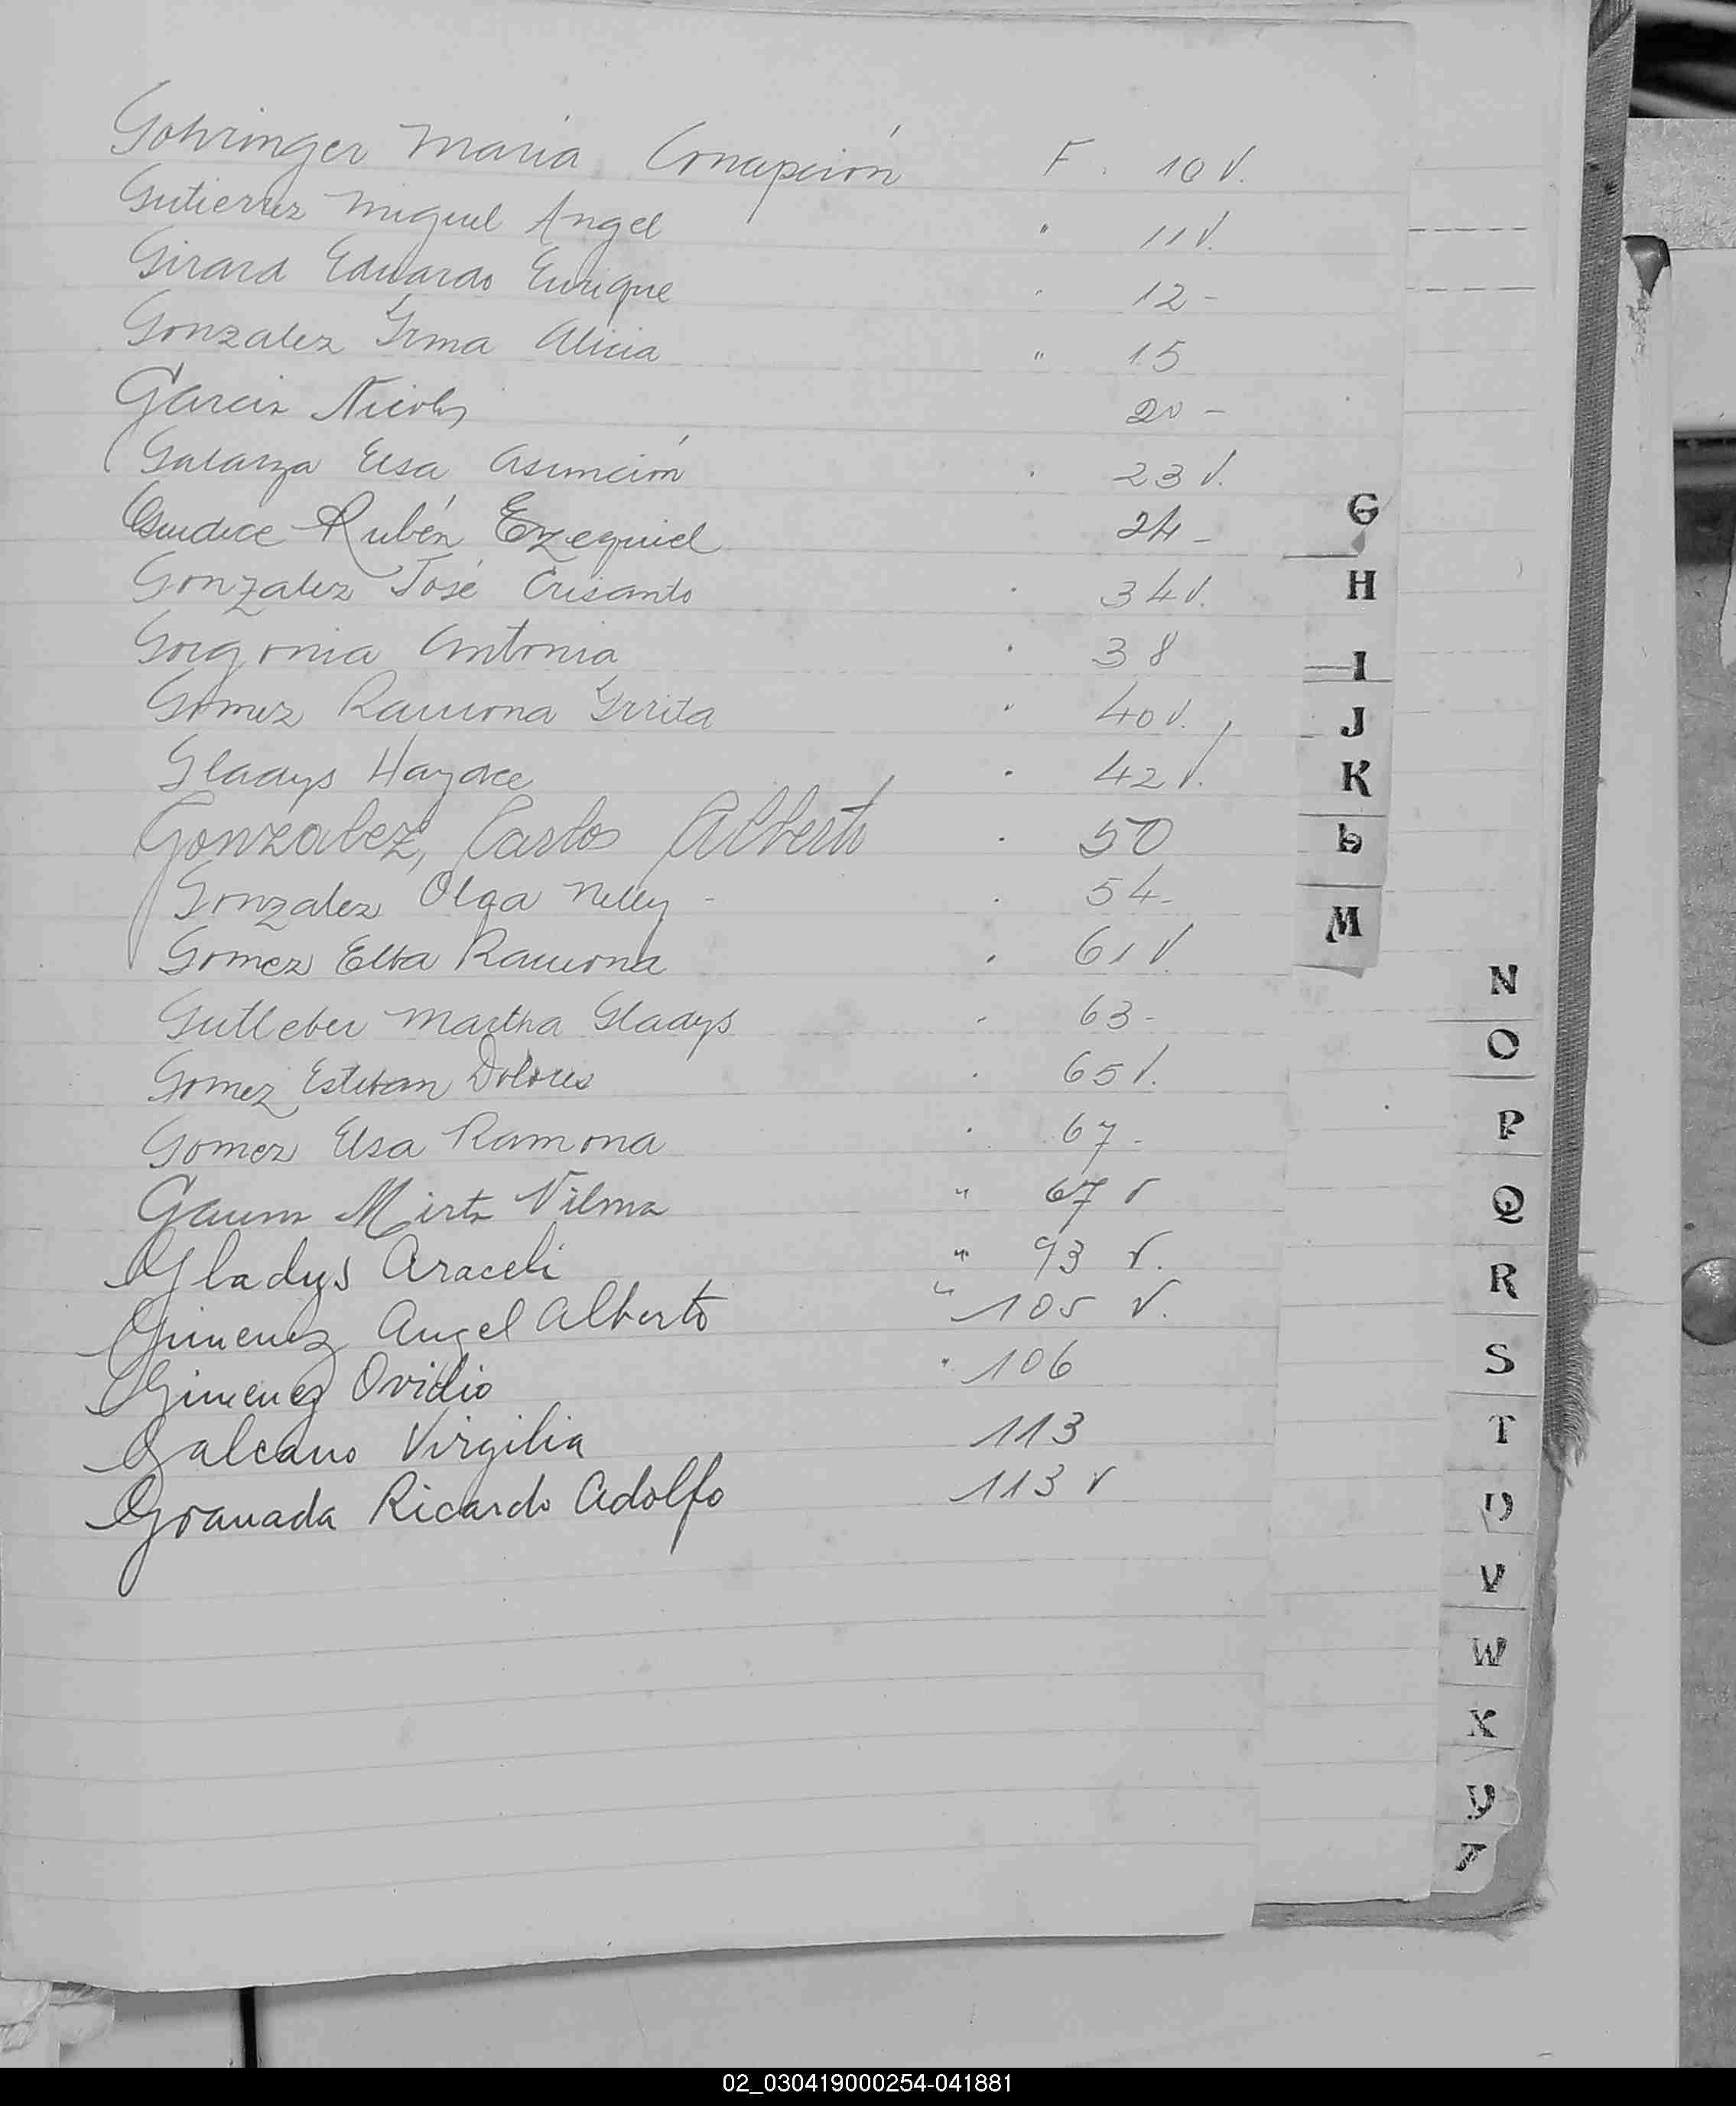 Gohringer Maria Concepción F. 10 v.
Gutierrez Miguel Angel " 11 v.
Girard Eduardo Enrique " 12 -
Gonzalez Irma Alicia " 15
Garcia Nicolas 20 -
Galarza Elsa Asunción " 23 v.
Guidice Rubén Ezequiel 24 -
Gonzalez José Crisanto " 34 v.
Gorgonia Antonia " 38
Gomez Ramona " 40 v.
Gladys Haydee " 42 v.
Gonzalez, Carlos Alberto " 50
Gonzalez Olga Nelly - " 54 -
Gomez Elba Ramona " 61 v.
Gutleber Martha Gladys " 63 -
Gomez Esteban Dolores " 65 v.
Gomez Elsa Ramona " 67 -
Mirta Vilma " 67 v
Gladys Araceli " 93 v.
Gimenez Angel Alberto " 105 v.
Gimenez Ovidio " 106
Galeano Virgilia 113
Granada Ricardo Adolfo 113 v
G
H
I
J
K
L
M
N
O
P
Q
R
S
T
U
V
W
X
Y
Z
02_030419000254-041881